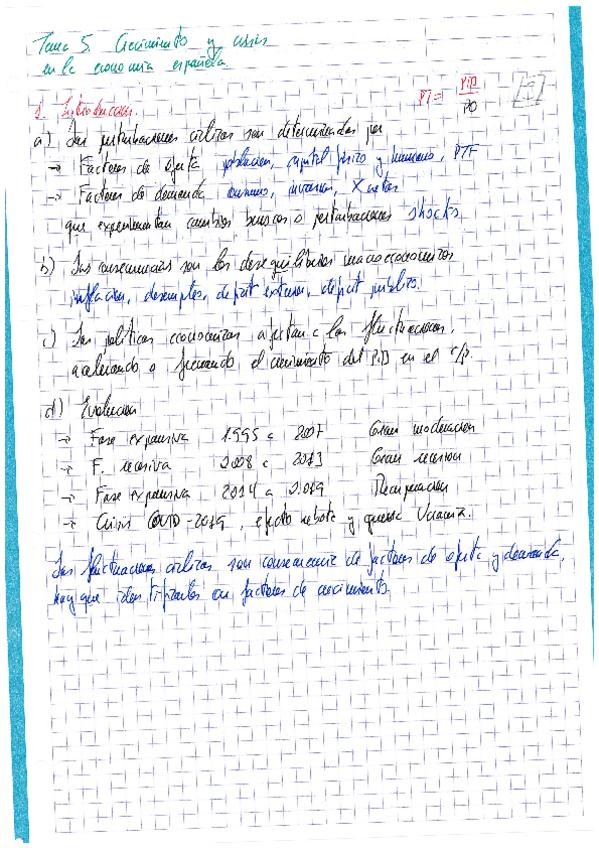 Tema 5. Crecimiento y crisis
en la economía española
1. Introducción.
PT = PIB / PO
a) Las perturbaciones cíclicas son determinadas por
→ Factores de oferta población, capital físico y humano, PTF
→ Factores de demanda consumo, inversión, X netas
que experimentan cambios bruscos o perturbaciones shocks.
b) Las consecuencias son los desequilibrios macroeconómicos
inflación, desempleo, déficit exterior, déficit público.
c) Las políticas económicas ajustan a las fluctuaciones,
acelerando o frenando el crecimiento del PIB en el c/p.
d) Evolución
→ Fase expansiva 1995 a 2007 Gran moderación
→ F. recesiva 2008 a 2013 Gran recesión
→ Fase expansiva 2014 a 2019 Recuperación
→ Crisis COVID-2019, efecto rebote y guerra Ucrania.
Las fluctuaciones cíclicas son consecuencia de factores de oferta y demanda,
hay que identificarlos con factores de crecimiento.